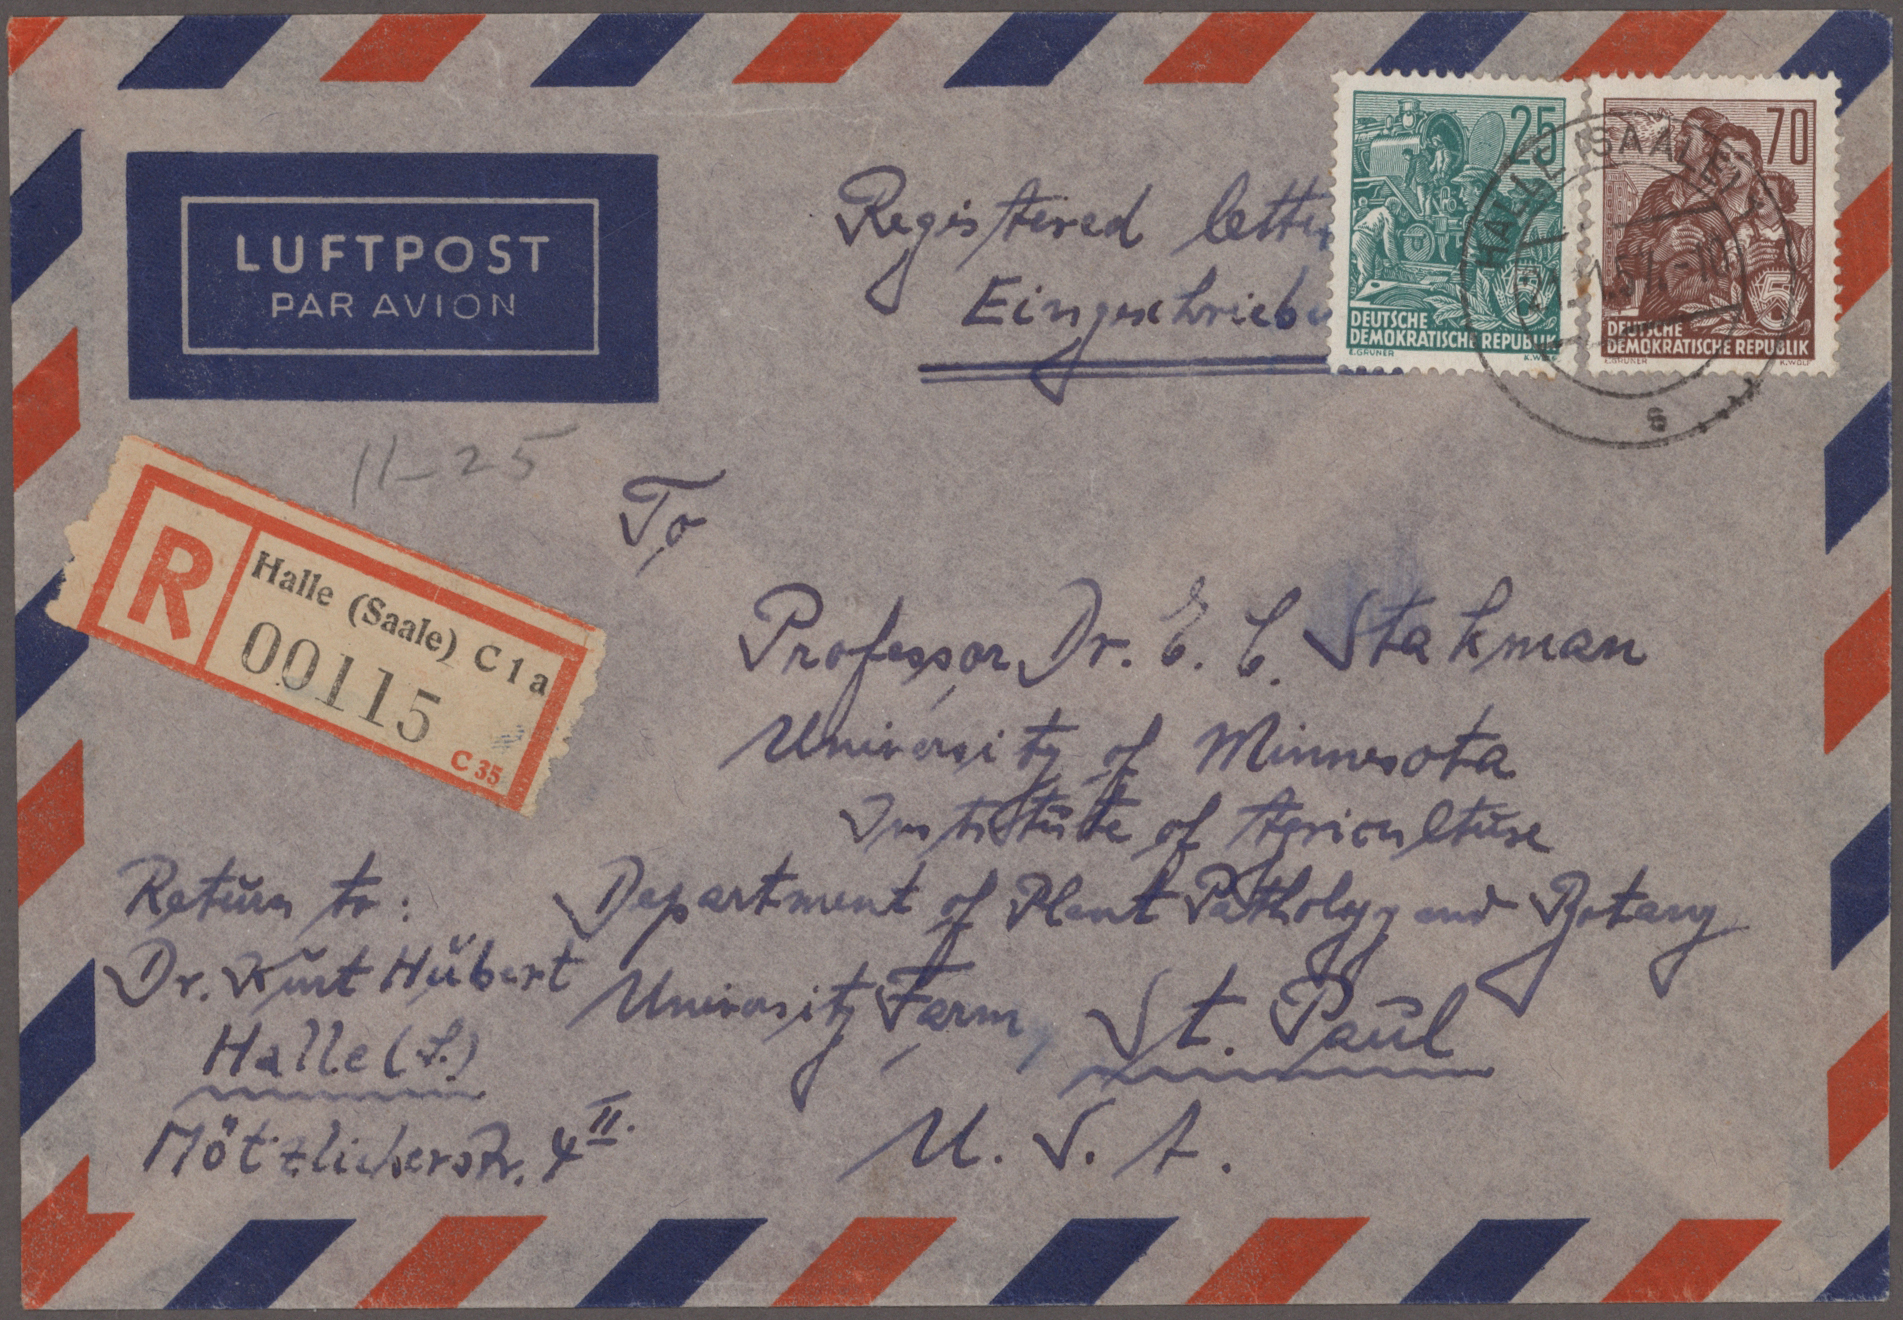 LUFTPOST
PAR AVION
Registered letter
Eingeschriebe
25
DEUTSCHE
DEMOKRATISCHE REPUBLIK
E.GRUNER K.WOLF
70
DEUTSCHE
DEMOKRATISCHE REPUBLIK
E.GRUNER K.WOLF
HALLE (SAALE)
11-25
R
Halle (Saale) C 1 a
00115
C 35
To
Professor Dr. E. C. Stakman
University of Minnesota
Institute of Agriculture
Department of Plant Pathology and Botany
University Farm, St. Paul
U. S. A.
Return to:
Dr. Kurt Hübert
Halle (S.)
Mötzlicherstr. 4 II.